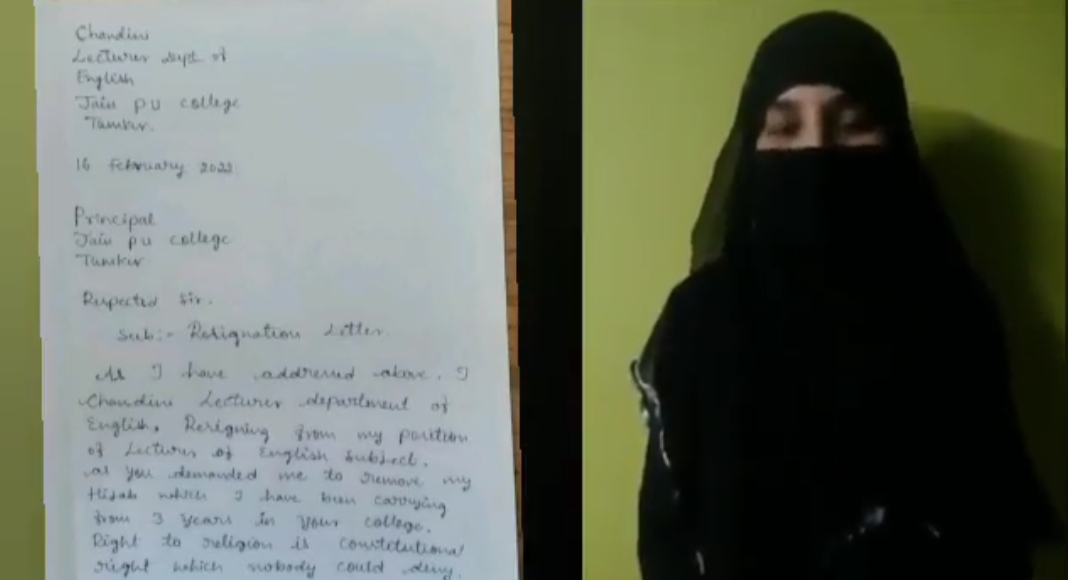 Chandini
Lecturer Dept of
English
Jain pu college
Tumkur.
16 February 2022
Principal
Jain pu college
Tumkur
Respected Sir.
Sub:- Resignation Letter.
As I have addressed above. I
Chandini Lecturer department of
English. Resigning from my position
of Lecturer of English Subject.
as you demanded me to remove my
Hijab which I have been carrying
from 3 years in your college.
Right to religion is constitutional
right which nobody could deny.